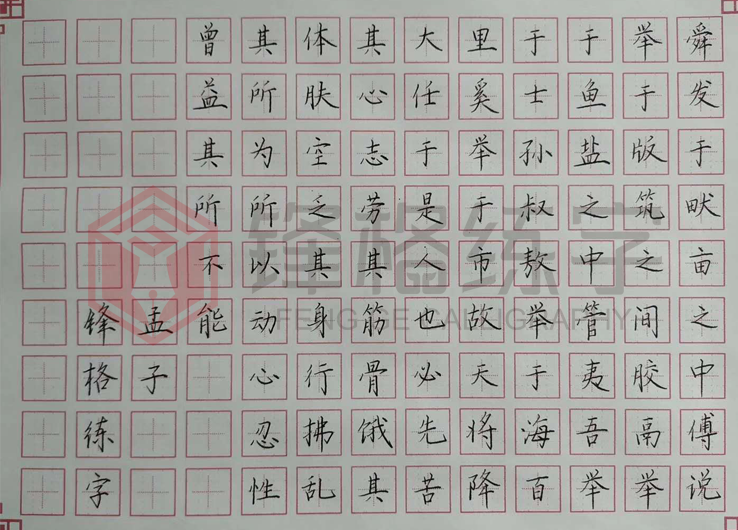 舜发于畎亩之中傅说
举于版筑之间胶鬲举
于鱼盐之中管夷吾举
于士孙叔敖举于海百
里奚举于市故天将降
大任于是人也必先苦
其心志劳其筋骨饿其
体肤空乏其身行拂乱
其所为所以动心忍性
曾益其所不能
孟子
锋格练字
锋格练字
FENG GE CALLIGRAPHY